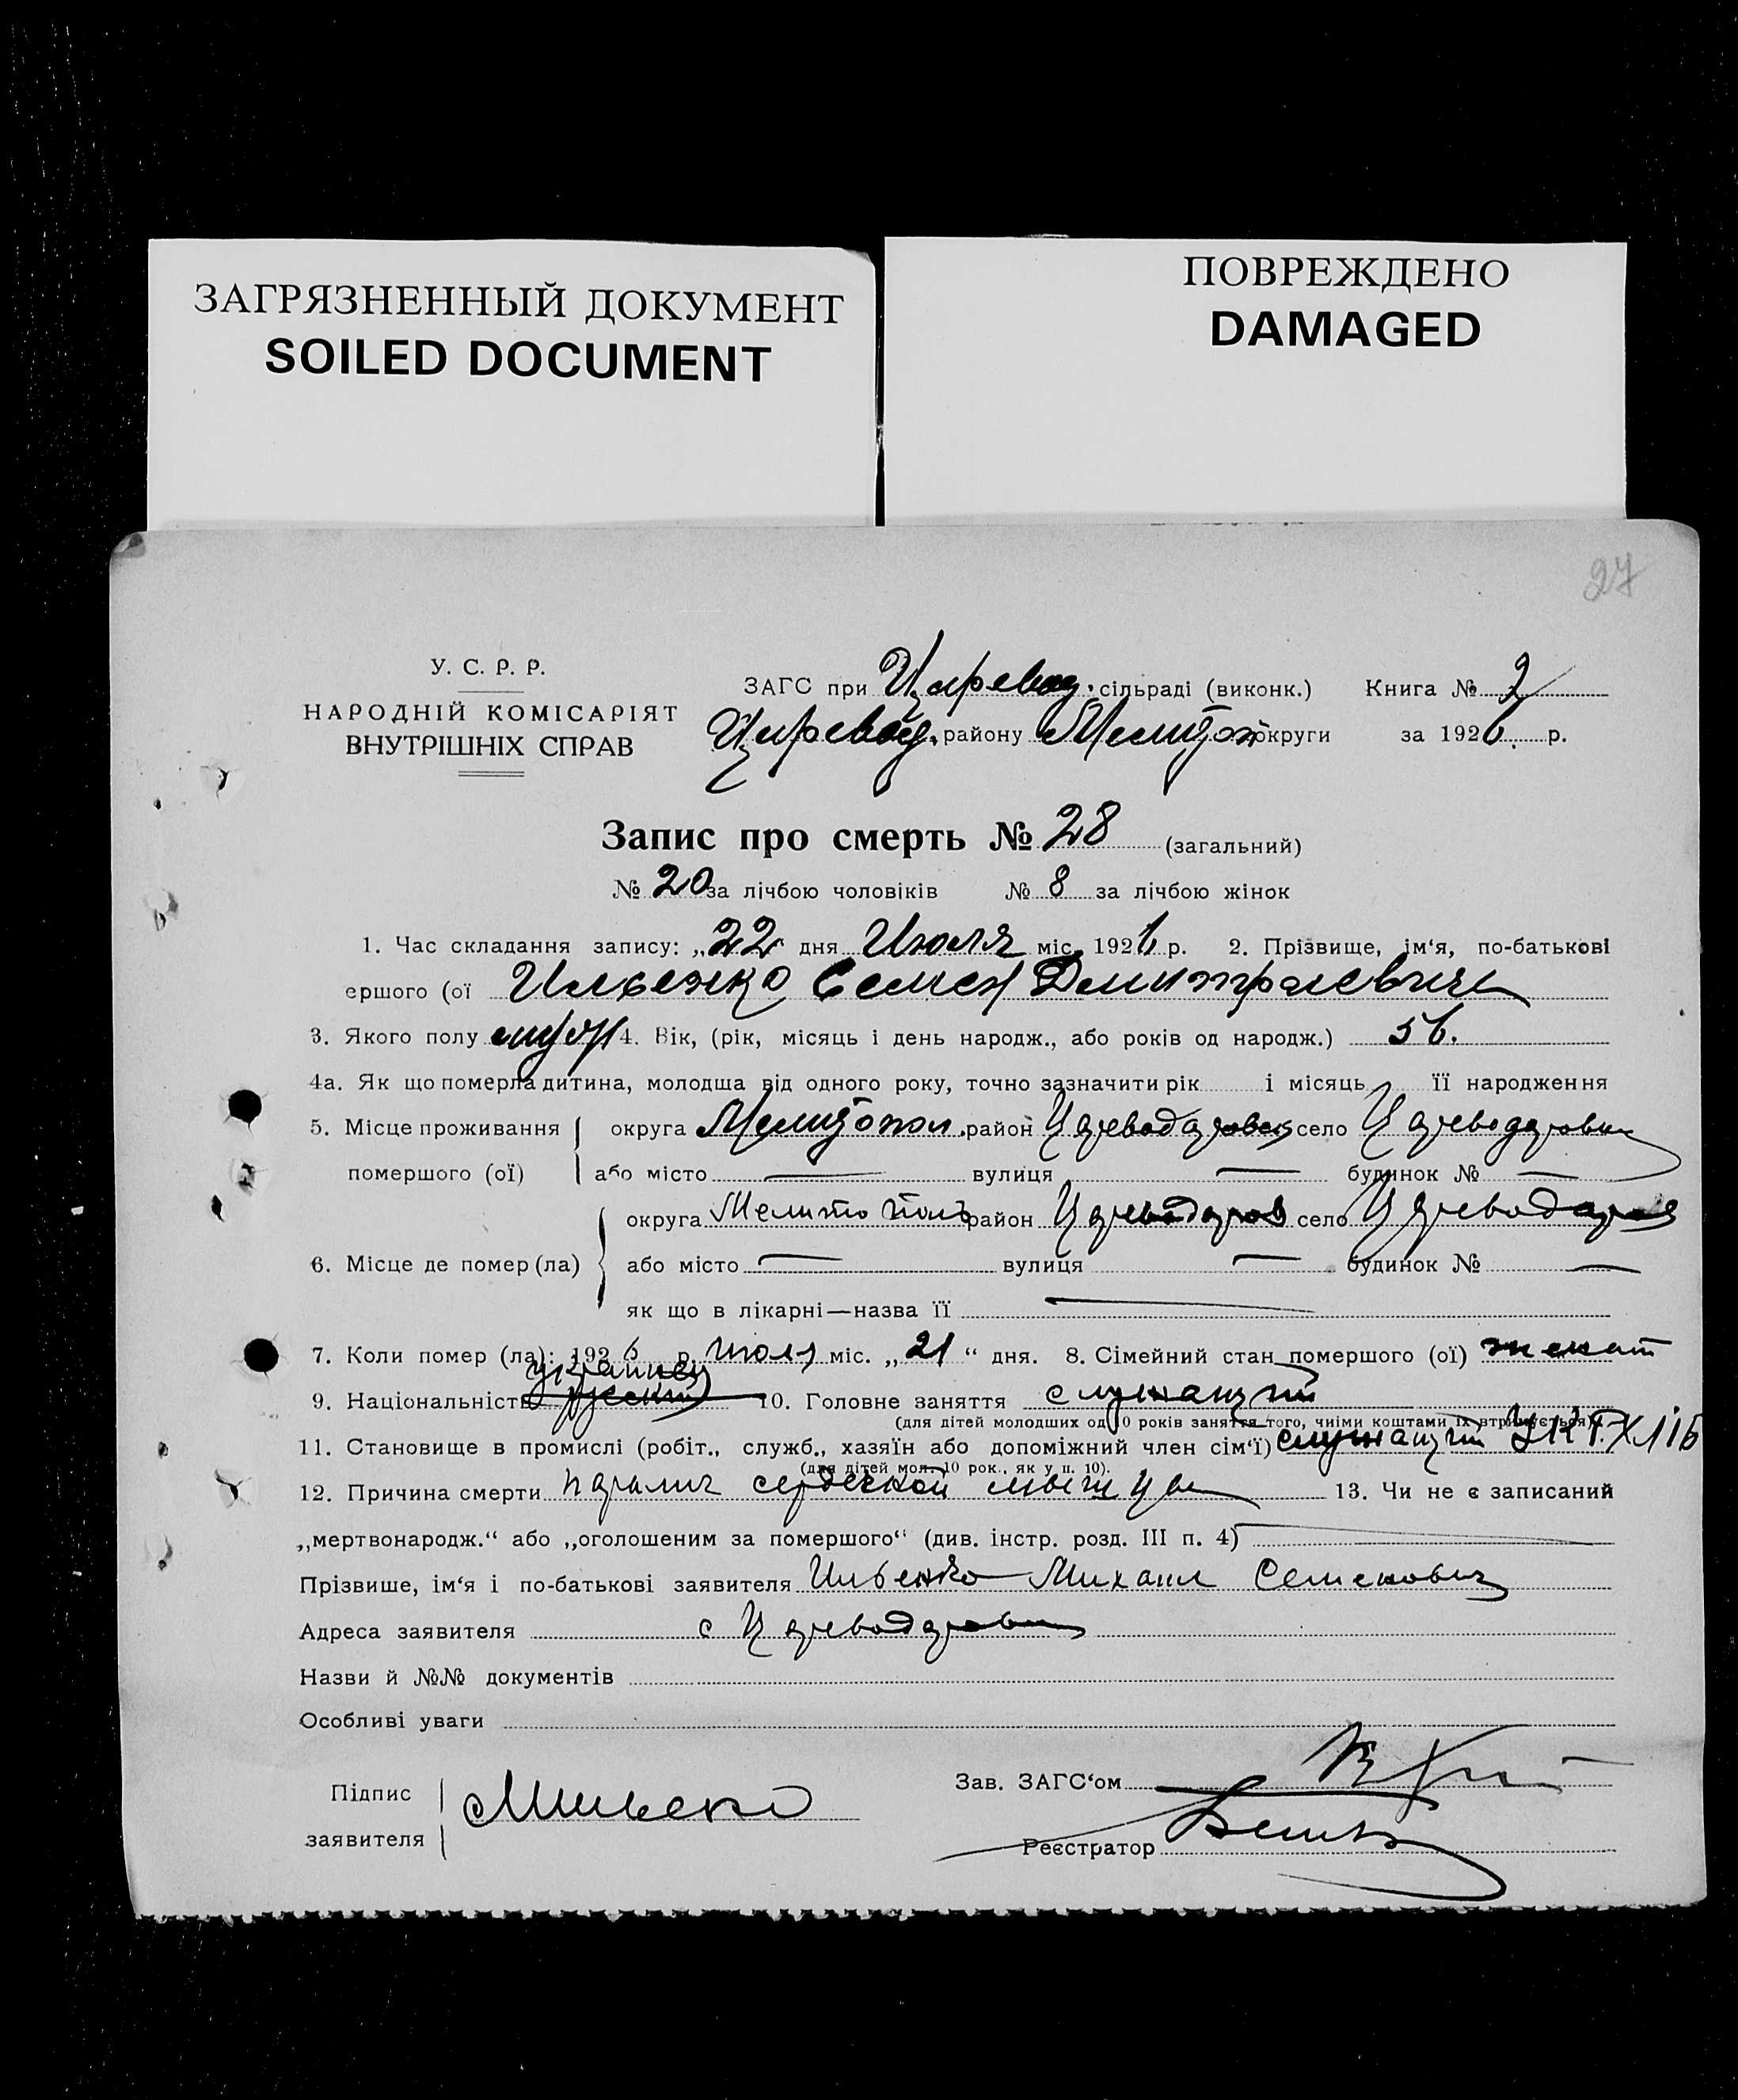 ЗАГРЯЗНЕННЫЙ ДОКУМЕНТ
SOILED DOCUMENT
ПОВРЕЖДЕНО
DAMAGED
27
У. С. Р. Р.
НАРОДНІЙ КОМІСАРІЯТ
ВНУТРІШНІХ СПРАВ
ЗАГС при Царевод. сільраді (виконк.) Книга № 2
Царевод. району Мелитоп округи за 1926 р.
Запис про смерть № 28 (загальний)
№ 20 за лічбою чоловіків № 8 за лічбою жінок
1. Час складання запису: „22 дня Июля міс. 1926 р. 2. Прізвище, ім‘я, по-батькові
ершого (ої Ильенко Семен Дмитриевич
3. Якого полу муж 4. Вік, (рік, місяць і день народж., або років од народж.) 56.
4а. Як що померла дитина, молодша від одного року, точно зазначити рік і місяць її народження
5. Місце проживання помершого (ої) округа Мелитопол. район Цареводаровск село Цареводаровка
або місто — вулиця — будинок № —
6. Місце де помер (ла) округа Мелитополь район Цареводаров село Цареводаров
або місто — вулиця — будинок № —
як що в лікарні—назва її —
7. Коли помер (ла): 1926 р. июля міс. „21“ дня. 8. Сімейний стан помершого (ої) женат
украинец
9. Національність русский 10. Головне заняття служащий
(для дітей молодших од 10 років заняття того, чиїми коштами їх втримується)
11. Становище в промислі (робіт., служб., хазяїн або допоміжний член сім‘ї) служащий
(для дітей мол. 10 рок., як у п. 10).
12. Причина смерти паралич сердечной мышцы 13. Чи не є записаний
„мертвонародж.“ або „оголошеним за помершого“ (див. інстр. розд. III п. 4) —
Прізвише, ім‘я і по-батькові заявителя Ильенко Михаил Семенович
Адреса заявителя с Цареводаровка
Назви й №№ документів
Особливі уваги
Підпис заявителя МИльенко
Зав. ЗАГС‘ом
Реєстратор